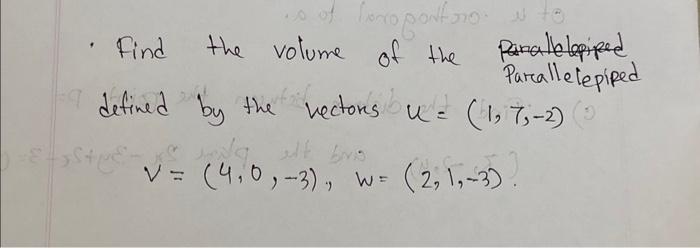 · Find the volume of the Parallelepiped
Parallelepiped
defined by the vectors u = (1, 7, -2)
V = (4, 0, -3), W = (2, 1, -3).